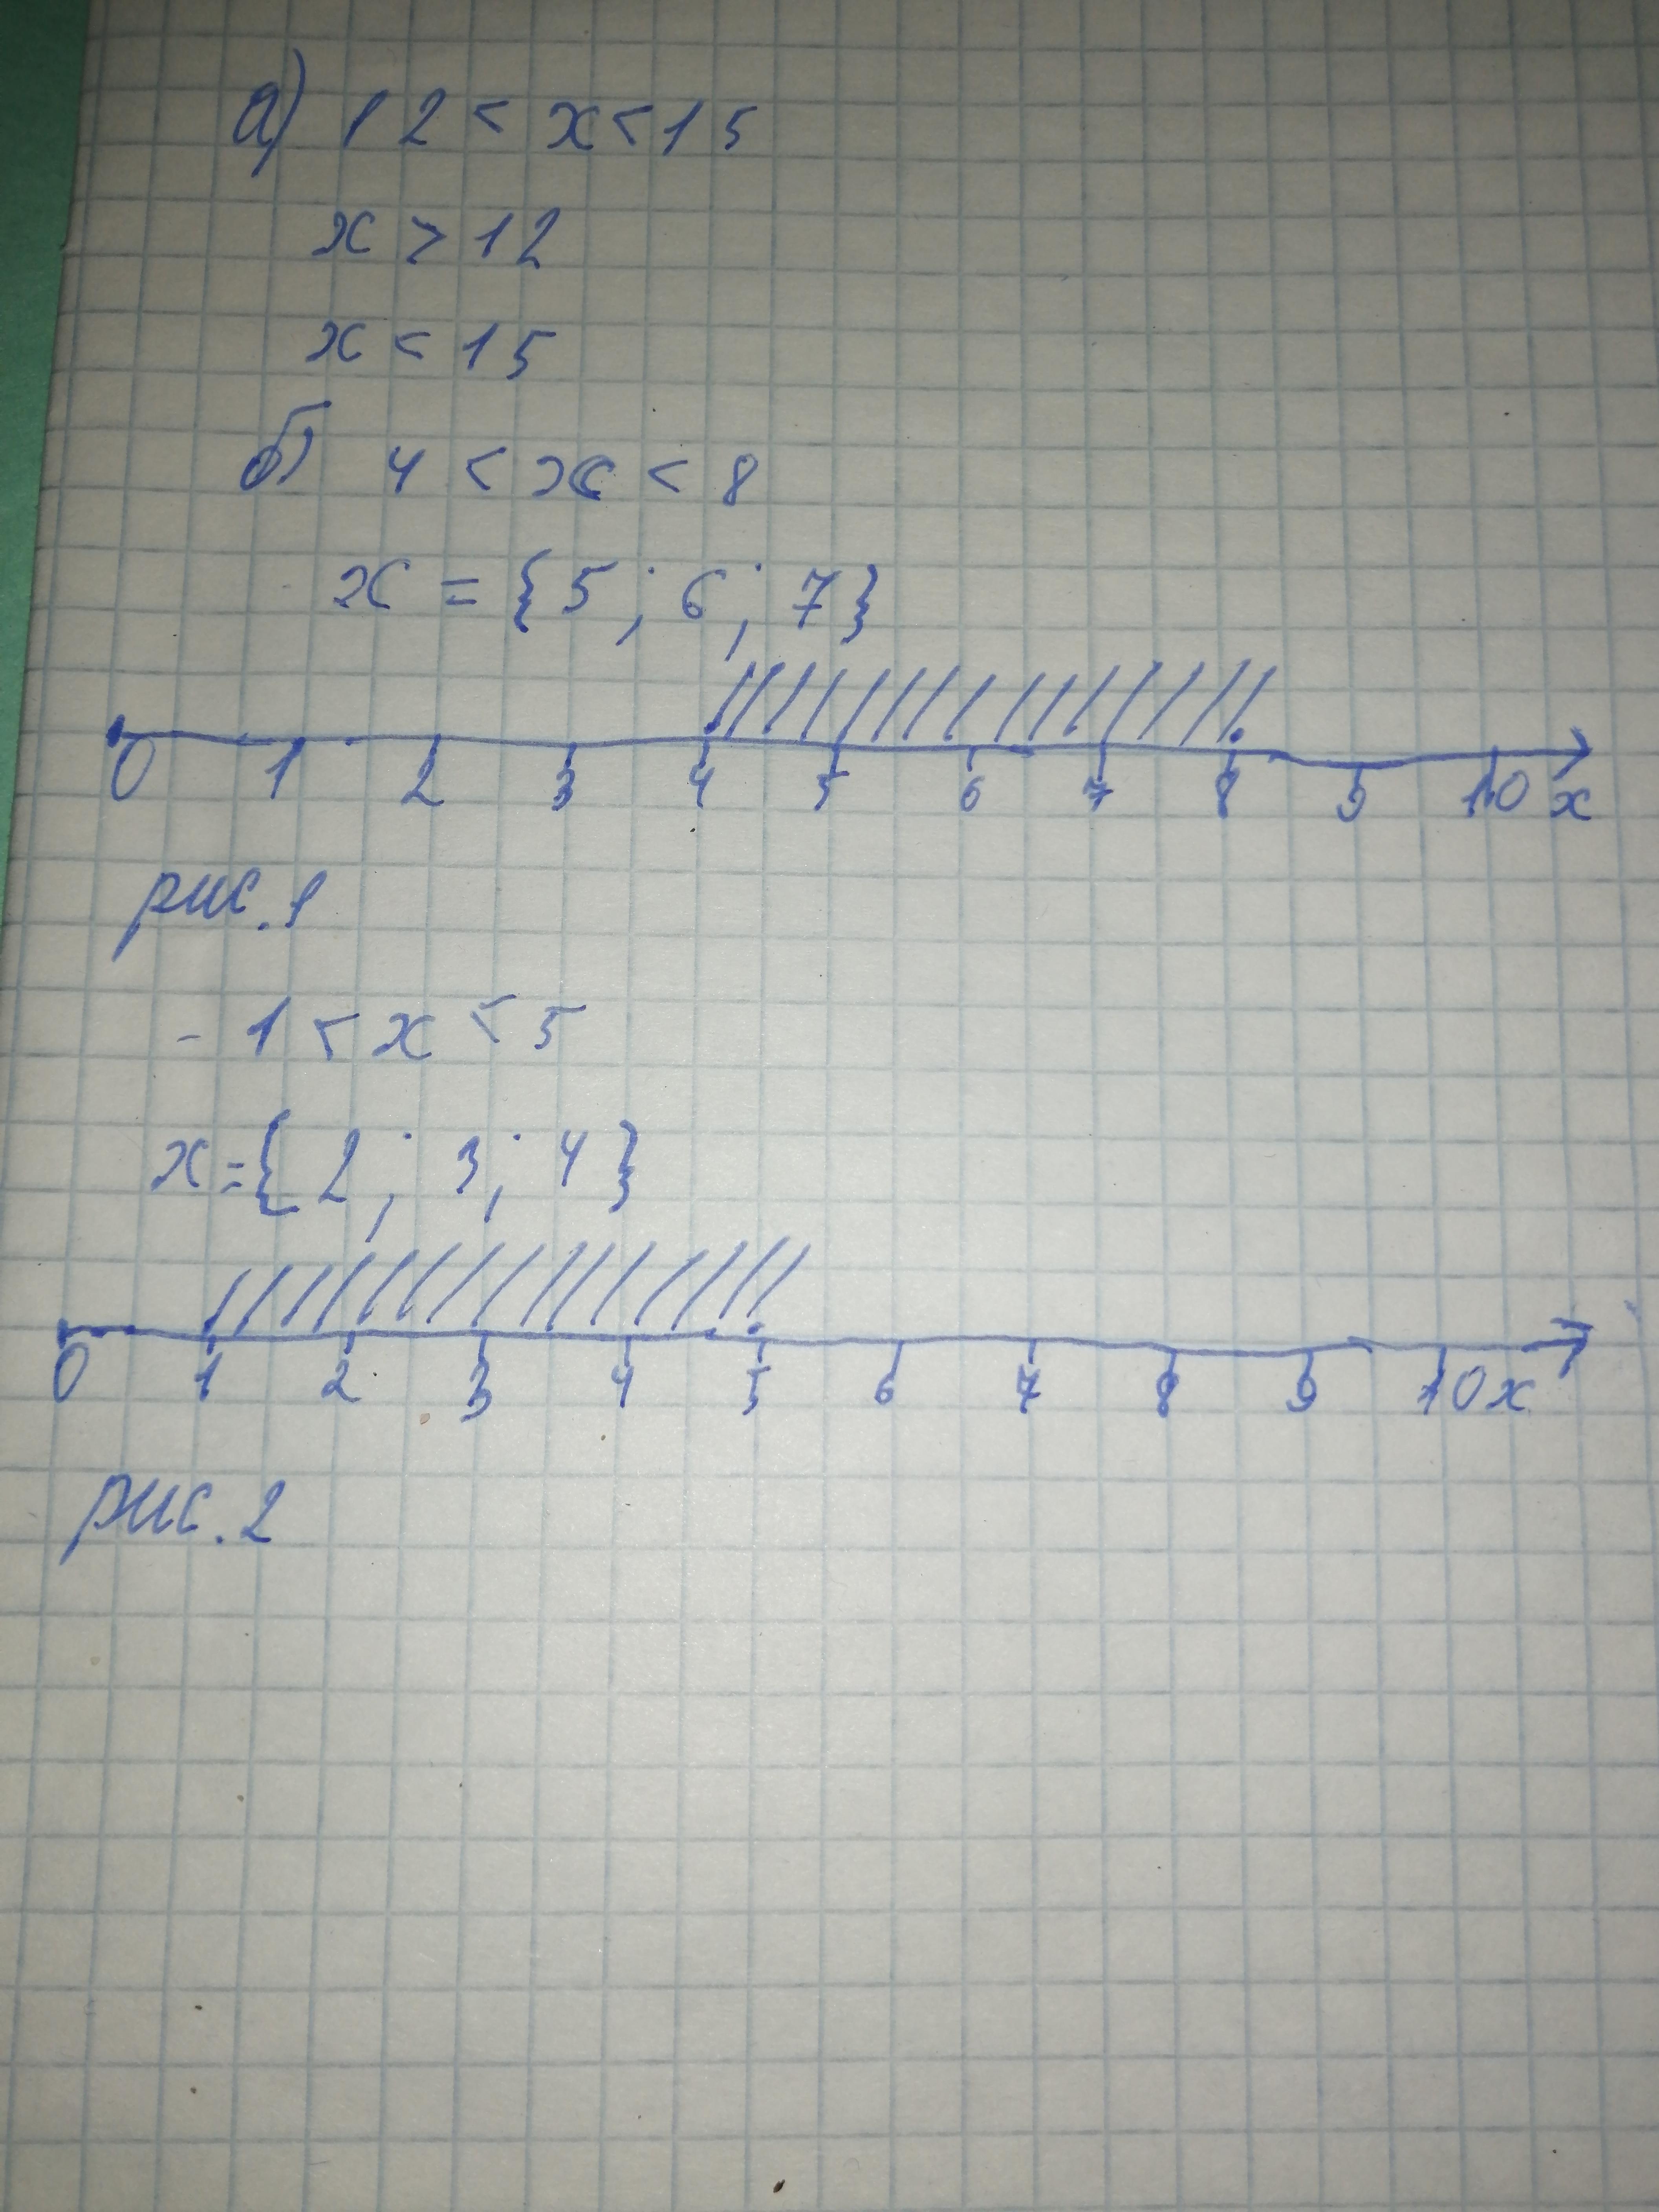 а) 12 < x < 15
x > 12
x < 15
б) 4 < x < 8
x = {5; 6; 7}
0 1 2 3 4 5 6 7 8 9 10 x
рис. 1
- 1 < x < 5
x = {2; 3; 4}
0 1 2 3 4 5 6 7 8 9 10 x
рис. 2